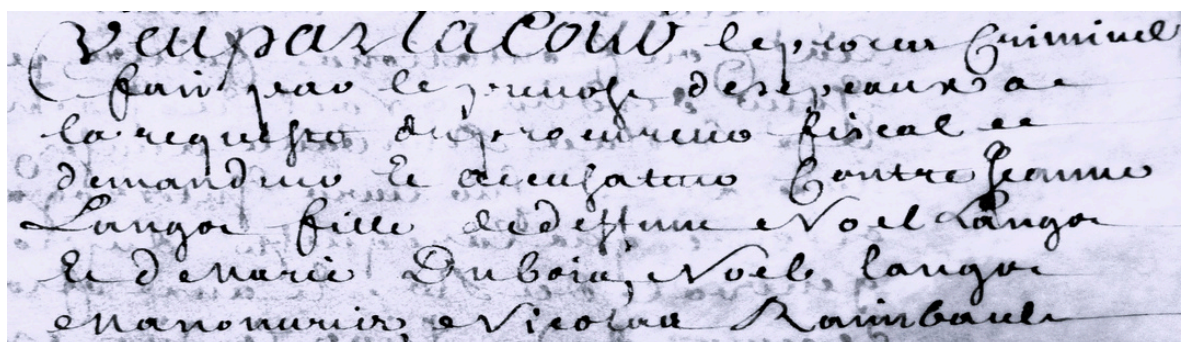 Veu par la Cour le proces Criminel
fait par le prevost desepeaux a
la requeste du procureur fiscal
demandeur Et accusateur Contre Jeanne
Langoe fille de deffunt Noel Langoe
Et de Marie Dubois, Noel langoe
Manouvrier, Nicolas Raimbault